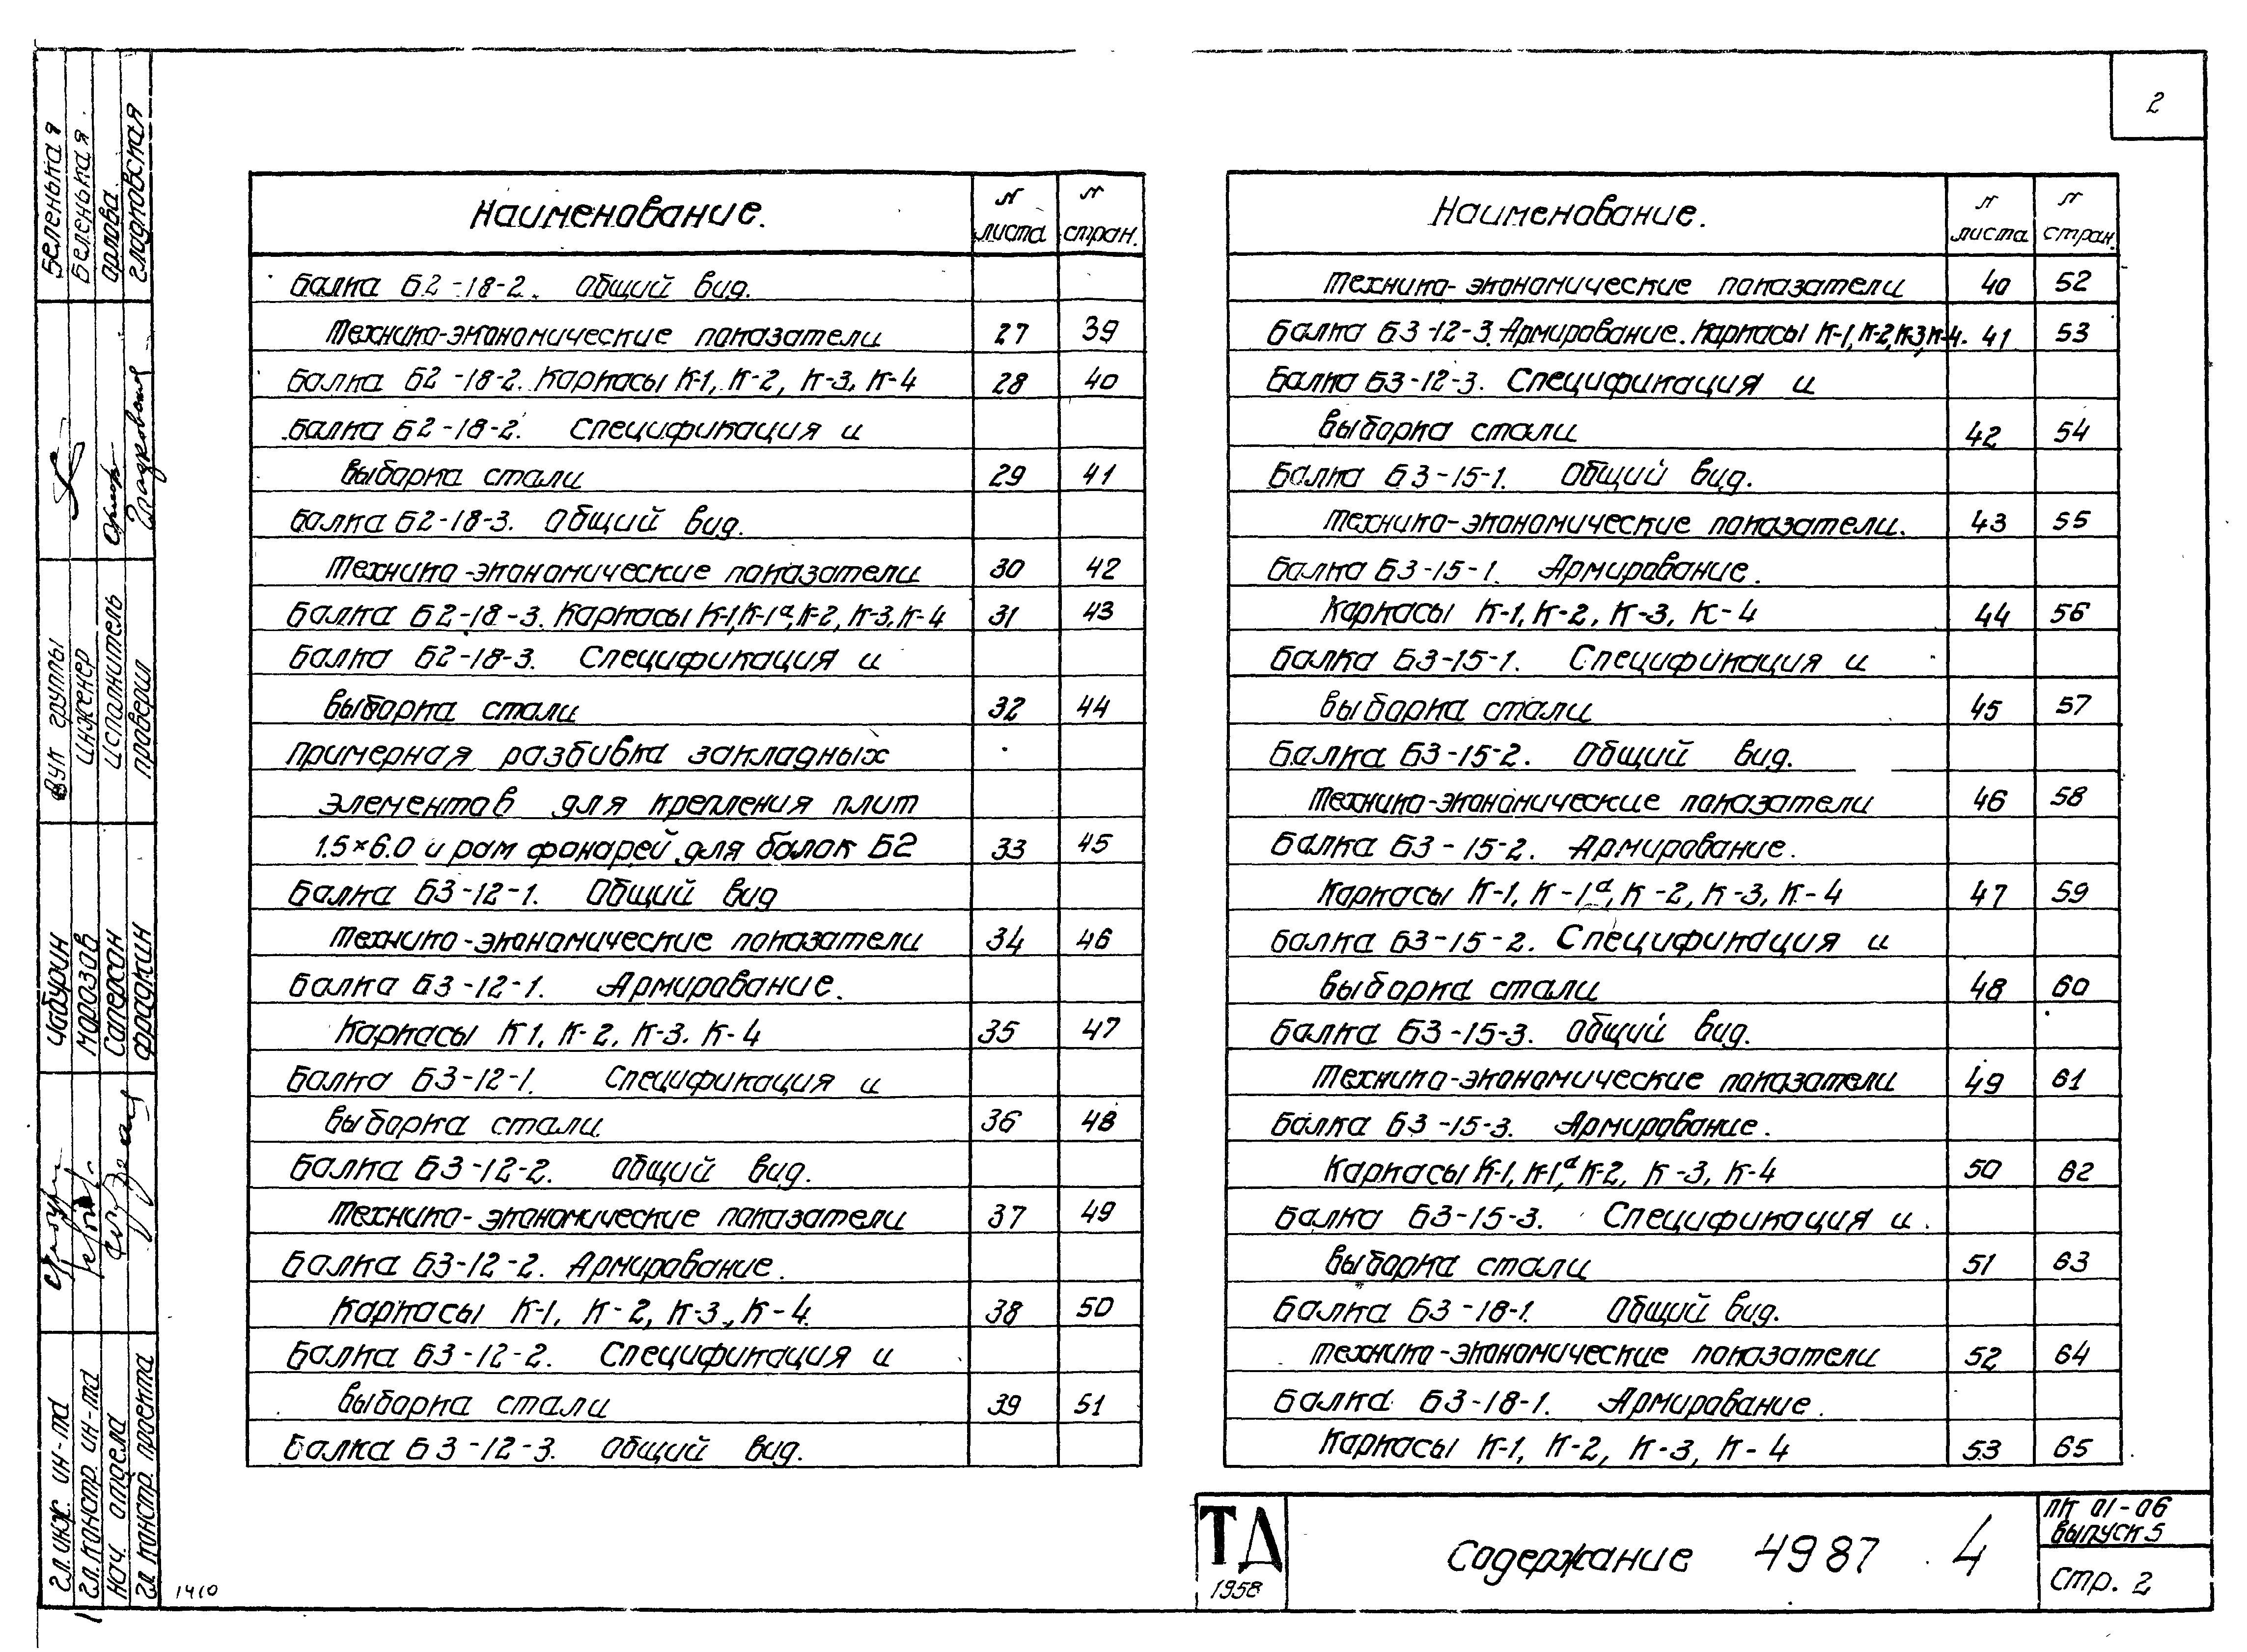 2
Наименование. N листа N стран.
Балка Б2-18-2. Общий вид.
Технико-экономические показатели 27 39
Балка Б2-18-2. Каркасы К-1, К-2, К-3, К-4 28 40
Балка Б2-18-2. Спецификация и
выборка стали 29 41
Балка Б2-18-3. Общий вид.
Технико-экономические показатели 30 42
Балка Б2-18-3. Каркасы К-1, К-1а, К-2, К-3, К-4 31 43
Балка Б2-18-3. Спецификация и
выборка стали 32 44
Примерная разбивка закладных
элементов для крепления плит
1.5×6.0 и рам фонарей для балок Б2 33 45
Балка Б3-12-1. Общий вид
Технико-экономические показатели 34 46
Балка Б3-12-1. Армирование.
Каркасы К1, К-2, К-3. К-4 35 47
Балка Б3-12-1. Спецификация и
выборка стали 36 48
Балка Б3-12-2. Общий вид.
Технико-экономические показатели 37 49
Балка Б3-12-2. Армирование.
Каркасы К-1, К-2, К-3, К-4 38 50
Балка Б3-12-2. Спецификация и
выборка стали 39 51
Балка Б3-12-3. Общий вид.
Наименование. N листа N стран.
Технико-экономические показатели 40 52
Балка Б3-12-3. Армирование. Каркасы К-1, К-2, К-3, К-4. 41 53
Балка Б3-12-3. Спецификация и
выборка стали 42 54
Балка Б3-15-1. Общий вид.
Технико-экономические показатели. 43 55
Балка Б3-15-1. Армирование.
Каркасы К-1, К-2, К-3, К-4 44 56
Балка Б3-15-1. Спецификация и
выборка стали 45 57
Балка Б3-15-2. Общий вид.
Технико-экономические показатели 46 58
Балка Б3-15-2. Армирование.
Каркасы К-1, К-1а, К-2, К-3, К-4 47 59
Балка Б3-15-2. Спецификация и
выборка стали 48 60
Балка Б3-15-3. Общий вид.
Технико-экономические показатели 49 61
Балка Б3-15-3. Армирование.
Каркасы К-1, К-1а, К-2, К-3, К-4 50 62
Балка Б3-15-3. Спецификация и
выборка стали 51 63
Балка Б3-18-1. Общий вид.
Технико-экономические показатели 52 64
Балка Б3-18-1. Армирование.
Каркасы К-1, К-2, К-3, К-4 53 65
ТД
1958
Содержание 4987 4
ПК 01-06
выпуск 5
стр. 2
1410
Гл. инж. ин-та Чабурин Рук группы Беленькая
Гл. констр. ин-та Морозов Инженер Беленькая
Нач. отдела Саперсон Исполнитель Орлова
Гл. констр. проекта Фрадкин Проверил Гладковская